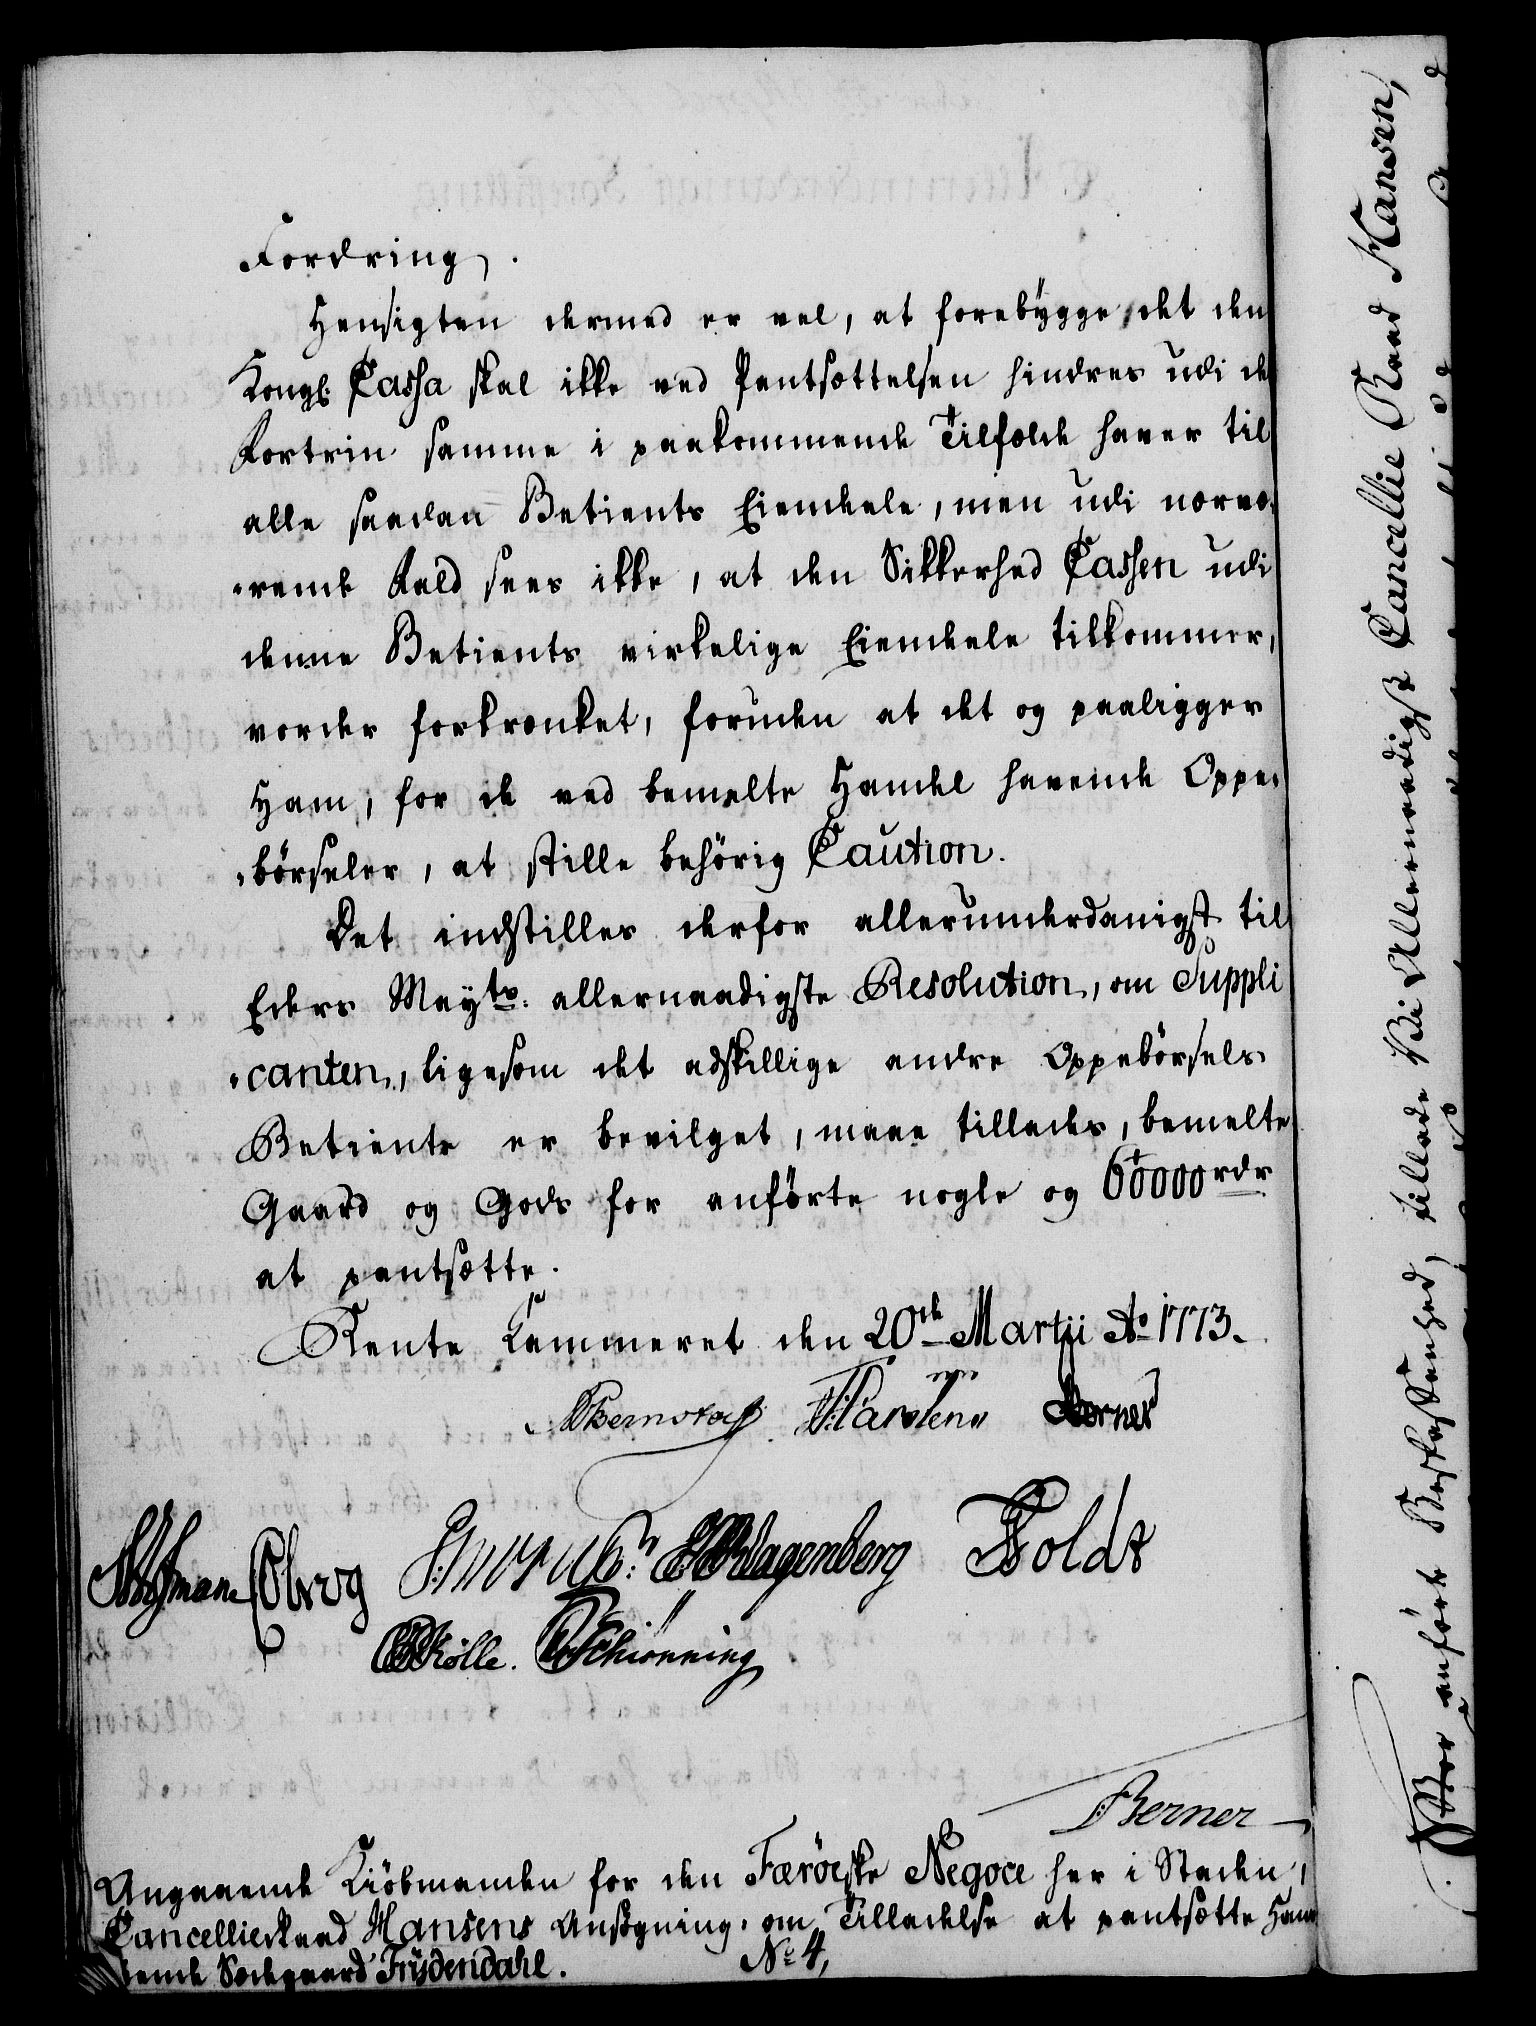 Fordring.
Hensigten dermed er vel, at forebygge, det den
Kongl: Cassa skal ikke ved Pantsættelsen hindres udi de
Fortrin samme i paakommende Tilfælde haver til
alle saadan Betients Eiendeele, men udi nærvæ-
-rende Fald sees ikke, at den Sikkerhed Cassen udi
denne Betients virkelige Eiendeele tilkommer,
vorder forkrænket, foruden at det og paaligger
Ham, for de ved bemelte Handel havende Oppe-
-börseler, at stille behörig Caution.
Det indstilles derfor allerunderdanigst til
Eders Mayts: allernaadigste Resolution, om Suppli
-canten, ligesom det adskillige andre Oppebörsels
Betiente er bevilget, maae tillades, bemelte
Gaard og Gods for anförte nogle og 60000 rdr
at pantsætte.
Rente Kammeret den 20de Martii Ao 1773.
Berner
Hofmann Wagenberg Holdt
Rölle. Schiönning
Berner
Angaaende Kiöbmanden for den Færöeske Negoce her i Staden,
Cancellieraad Hansens Ansögning, om Tilladelse at pantsætte Ham
Sædegaard Frÿdendahl.
No 4,
Vor anförte Beskaffenhed, tillade Vi Allernaadigst Cancellie Raad Hansen,